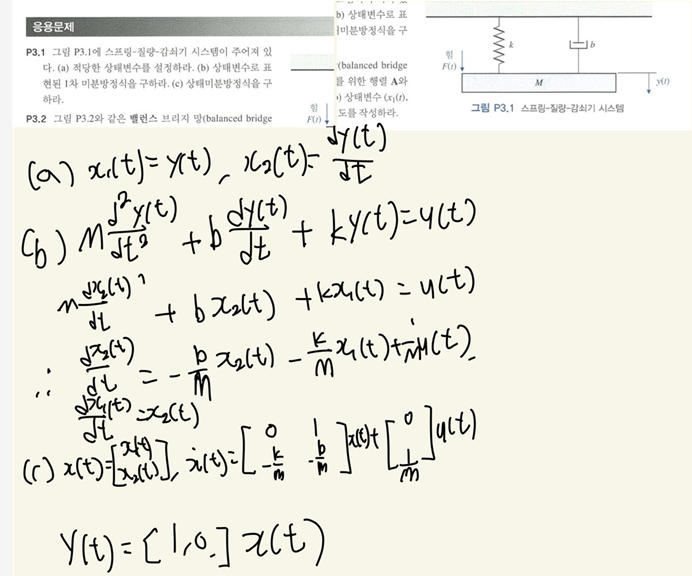 응용문제
P3.1 그림 P3.1에 스프링-질량-감쇠기 시스템이 주어져 있
다. (a) 적당한 상태변수를 설정하라. (b) 상태변수로 표
현된 1차 미분방정식을 구하라. (c) 상태미분방정식을 구
하라.
P3.2 그림 P3.2와 같은 밸런스 브리지 망(balanced bridge
힘
F(t)
b) 상태변수로 표
미분방정식을 구
(balanced bridge
를 위한 행렬 A와
) 상태변수 (x₁(t),
도를 작성하라.
k
b
힘
F(t)
M
y(t)
그림 P3.1 스프링-질량-감쇠기 시스템
(a) x₁(t)=y(t), x₂(t)=dy(t)/dt
(b) M d²y(t)/dt² + b dy(t)/dt + ky(t)=u(t)
M dx₂(t)/dt + bx₂(t) + kx₁(t) = u(t)
∴ dx₂(t)/dt = -b/M x₂(t) - k/M x₁(t) + 1/M u(t)
dx₁(t)/dt = x₂(t)
(c) x(t)=[x₁(t) x₂(t)], ẋ(t)=[0 1 -k/m -b/m]x(t)+[0 1/m]u(t)
Y(t)=[1,0]x(t)